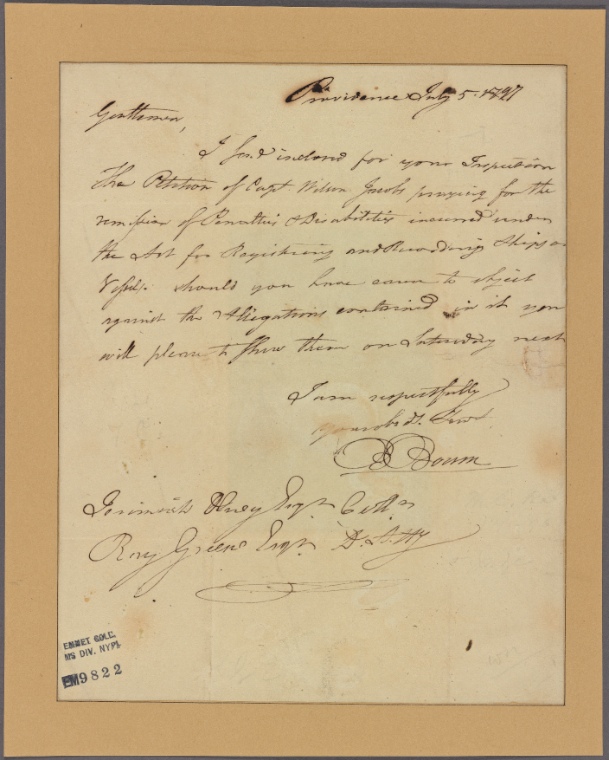 Providence July 5. 1797
Gentlemen,
I send inclosed for your Inspection
The Petition of Capt Wilson Jacobs praying for the
remission of Penalties & Disabilities incurred under
the Act for Registering and Recording Ships or
Vessels. Should you have cause to object
against the Allegations contained in it you
will please to shew them on Saturday next
I am respectfully
your obdt. Serv
B Bourn
Jeremiah Olney Esqr Collr
Ray Greene Esqr D. Atty
EMMET COLL.
MS DIV. NYPL
EM9822